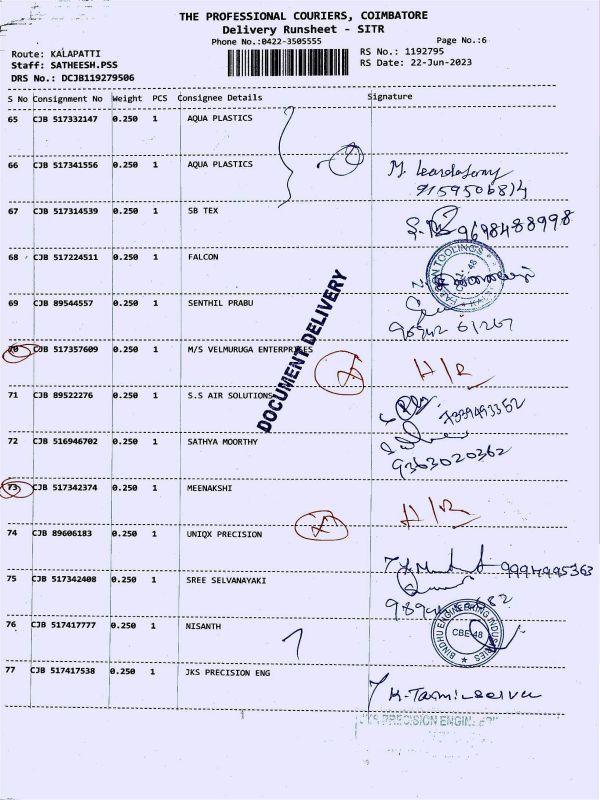 THE PROFESSIONAL COURIERS, COIMBATORE
Delivery Runsheet - SITR
Phone No.:0422-3505555 Page No.:6
Route: KALAPATTI RS No.: 1192795
Staff: SATHEESH.PSS RS Date: 22-Jun-2023
DRS No.: DCJB119279506
S No Consignment No Weight PCS Consignee Details Signature
65 CJB 517332147 0.250 1 AQUA PLASTICS
66 CJB 517341556 0.250 1 AQUA PLASTICS
9159506814
67 CJB 517314539 0.250 1 SB TEX
9698488998
68 CJB 517224511 0.250 1 FALCON
69 CJB 89544557 0.250 1 SENTHIL PRABU
70 CJB 517357609 0.250 1 M/S VELMURUGA ENTERPRISES
H/R
DOCUMENT DELIVERY
71 CJB 89522276 0.250 1 S.S AIR SOLUTIONS
7339493352
72 CJB 516946702 0.250 1 SATHYA MOORTHY
9363020362
73 CJB 517342374 0.250 1 MEENAKSHI
H/R
74 CJB 89606183 0.250 1 UNIQX PRECISION
9994995363
75 CJB 517342408 0.250 1 SREE SELVANAYAKI
76 CJB 517417777 0.250 1 NISANTH
BINDHU ENGINEERING INDUSTRIES
CBE-48
77 CJB 517417538 0.250 1 JKS PRECISION ENG
JKS PRECISION